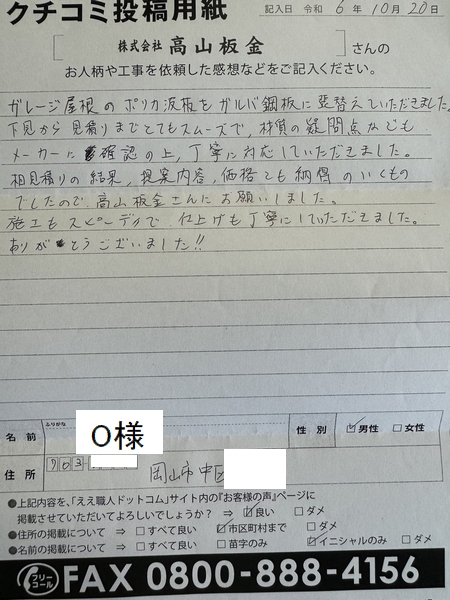 クチコミ投稿用紙
記入日 令和 6年10月20日
株式会社 高山板金 さんの
お人柄や工事を依頼した感想などをご記入ください。
ガレージ屋根のポリカ波板をガルバ鋼板に張替えていただきました。
下見から見積りまでとてもスムーズで、材質の疑問点なども
メーカーに確認の上、丁寧に対応していただきました。
相見積りの結果、提案内容、価格とも納得のいくもの
でしたので、高山板金さんにお願いしました。
施工もスピーディで、仕上げも丁寧にしていただきました。
ありがとうございました!!
ふりがな
名前 O様 性別 ☑男性 □女性
住所 703 岡山市中区
●上記内容を、「ええ職人ドットコム」サイト内の『お客様の声』ページに
掲載させていただいてよろしいでしょうか? ⇒ ☑良い □ダメ
●住所の掲載について ⇒ □すべて良い ☑市区町村まで □ダメ
●名前の掲載について ⇒ □すべて良い □苗字のみ ☑イニシャルのみ □ダメ
フリーコール FAX 0800-888-4156